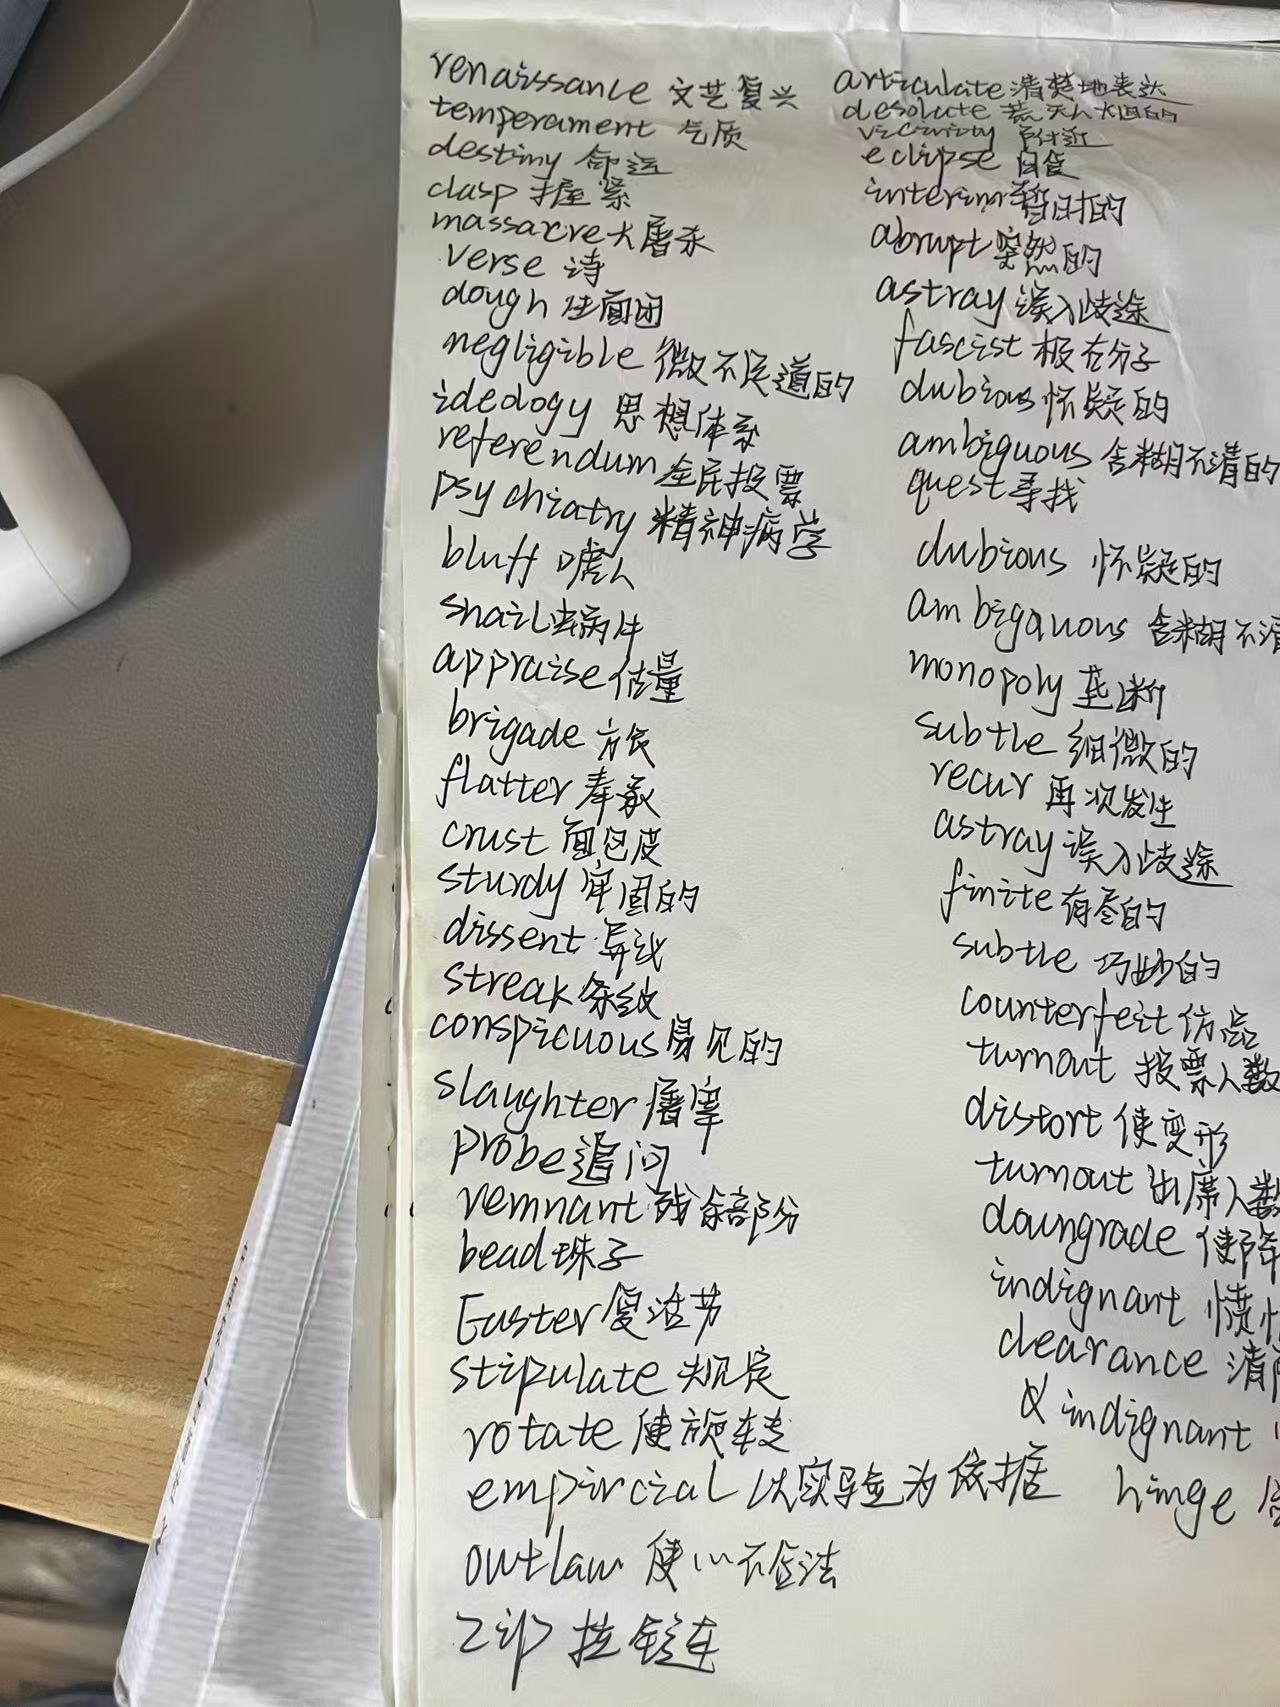 renaissance 文艺复兴
temperament 气质
destiny 命运
clasp 握紧
massacre 大屠杀
verse 诗
dough 生面团
negligible 微不足道的
ideology 思想体系
referendum 全民投票
psychiatry 精神病学
bluff 唬人
snail 蜗牛
appraise 估量
brigade 旅
flatter 奉承
crust 面包皮
sturdy 牢固的
dissent 异议
streak 条纹
conspicuous 易见的
slaughter 屠宰
probe 追问
remnant 残余部分
bead 珠子
Easter 复活节
stipulate 规定
rotate 使旋转
empircial 以实验为依据
outlaw 使…不合法
zip 拉链
articulate 清楚地表达
desolate 荒无人烟的
vicinity 附近
eclipse 日食
interim 暂时的
abrupt 突然的
astray 误入歧途
fascist 极右分子
dubious 怀疑的
ambiguous 含糊不清的
quest 寻找
dubious 怀疑的
ambigauous 含糊不清
monopoly 垄断
subtle 细微的
recur 再次发生
astray 误入歧途
finite 有尽的
subtle 巧妙的
counterfeit 仿品
turnout 投票人数
distort 使变形
turnout 出席人数
downgrade 使降
indignant 愤
clearance 清
indignant
hinge